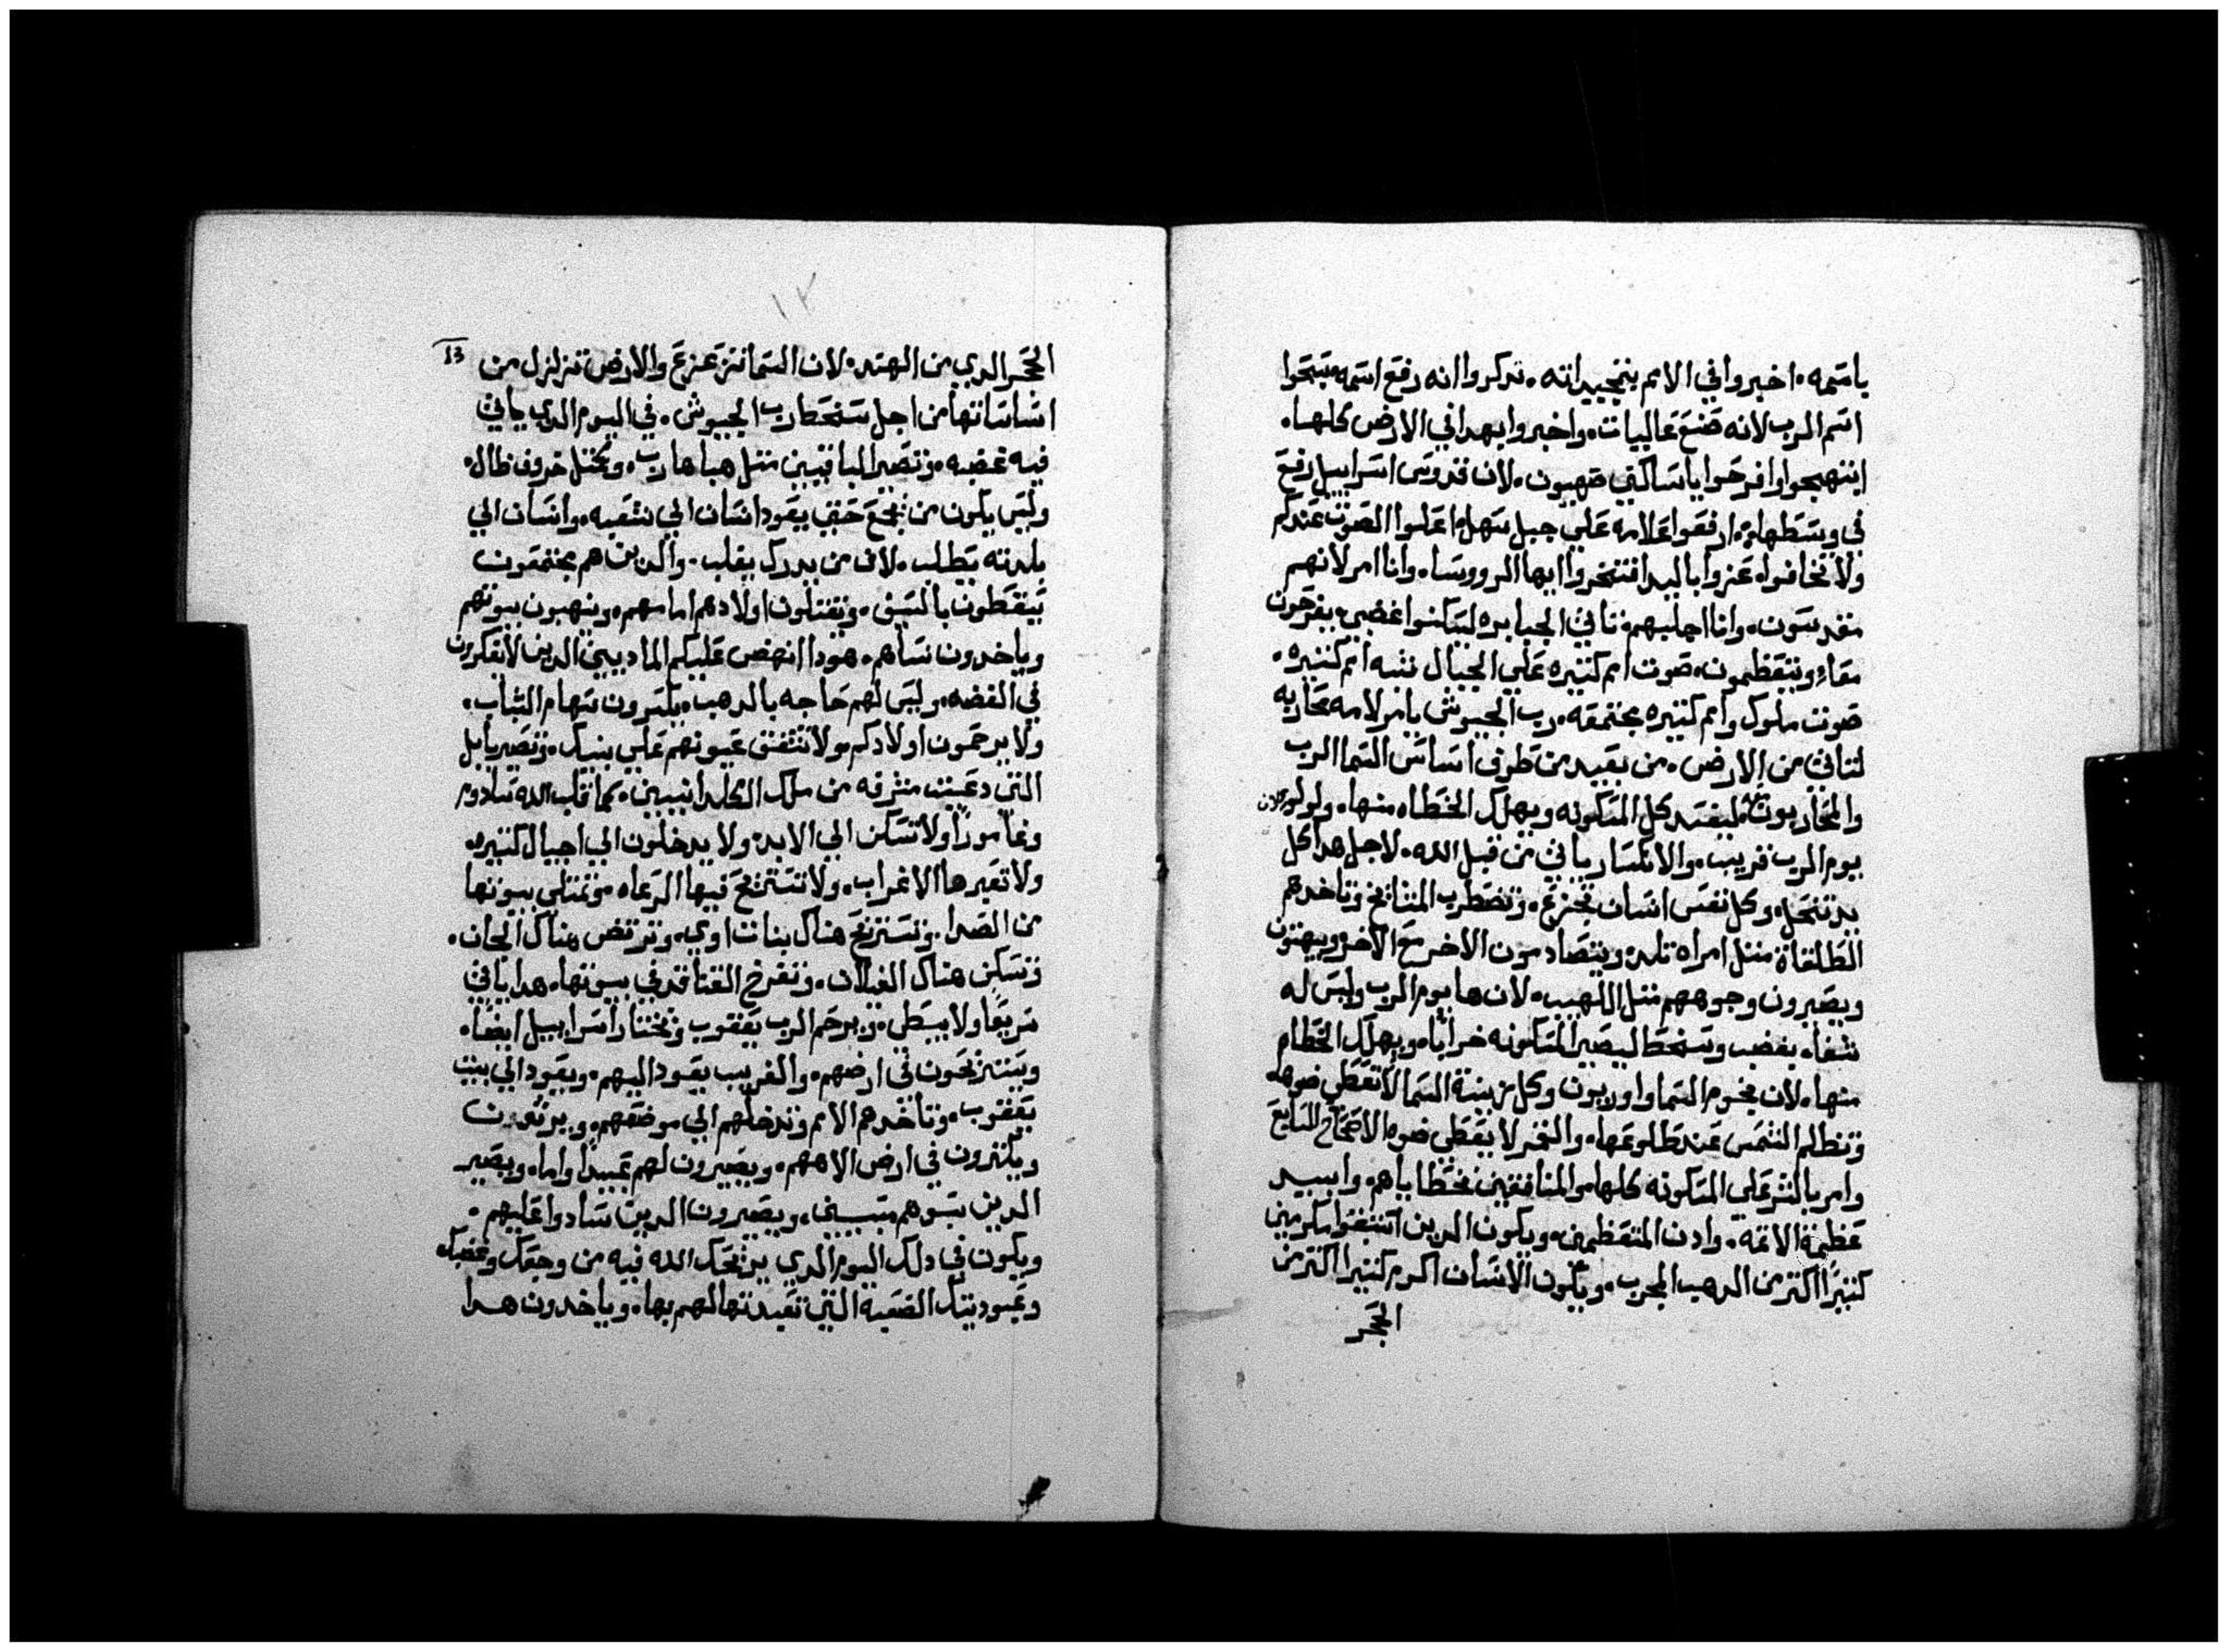 باسمه. اخبروا في الامم بتمجيداته. تدكروا انه رفع اسمه سبحوا
اسم الرب لانه صنع عاليات. واخبروا بهدا في الارض كلها.
ابتهجوا وافرحوا ياساكني صهيون. لان قدوس اسراييل رفع
في وسطها. ارفعوا علامه علي جبل سهل اعلوا الصوت عندكم
ولا تخافوا. عزوا باليد افتخروا ايها الرووسا. وانا امر لانهم
مقدسون. وانا اجلبهم. تاتي الجبابره ليسكنوا غضبي. يفرحون
معاً ويتعظمون. صوت امم كتيره علي الجبال تشبه امم كتيره.
صوت ملوك وامم كتيره مجتمعه. رب الجيوش يامر لامه محاربه
لتاتي من الارض. من بعيد من طرف اساس السما الرب
والمحاربون. ليفسد كل المسكونه ويهلك الخطاه منها. ولولو لان
يوم الرب قريب. والانكسار ياتي من قبل الله. لاجل هدا كل
يد تنحل. وكل نفس انسان تجزع. وتضطرب المشايخ وتاخدهم
الطلقات متل امراه تلد. ويتصادمون الاخر مع الاخر ويبهتون
ويصيرون وجوههم متل اللهيب. لان ها يوم الرب وليس له
شفا. بغضب وسخط ليصير المسكونه خراباً. ويهلك الخطاه
منها. لان نجوم السما واوريون وكل زينة السما لا تعطي ضوها.
وتظلم الشمس عند طلوعها. والقمر لا يعطي ضوه الاصحاح السابع
وامر بالشر علي المسكونه كلها. والمنافقين بخطاياهم. وابيد
عظمة الاتمة. وادن المتعظمين. ويكون الدين اتبقوا مكرمين
كتيراً اكتر من الدهب المجرب. ويكون الانسان اكرم كتيراً اكتر من
الحجر
13
١٢
الحجر الدي من الهند. لان السما تتزعزع والارض تتزلزل من
اساساتها من اجل سخط رب الجيوش. في اليوم الدي ياتي
فيه غضبه. وتصير الباقيين متل هبا هارب. ومتل خروف ظال.
وليس يكون من يجمع حتي يعود انسان الي شعبه. وانسان الي
بلدته يطلب. لان من يدرك يغلب. والدين هم مجتمعون
يسقطون بالسيف. ويقتلون اولادهم امامهم. وينهبون بيوتهم
وياخدون نساهم. هودا انهض عليكم الماديين الدين لا يفكرون
في الفضه. وليس لهم حاجه بالدهب. يكسرون سهام الشباب.
ولا يرحمون اولادكم ولا تشفق عيونهم علي بنيك. وتصير بابل
التي دعيت مشرفه من ملك الكلدانيين. كما قلب الله سادوم
وغامورا. ولا تسكن الي الابد. ولا يدخلون الي اجيال كتيره.
ولا تعبرها الاعراب. ولا تستريح فيها الرعاه. وتمتلي بيوتها
من الصدا. وتستريح هناك بنات اوي. وترقص هناك الجان.
وتسكن هناك الغيلان. وتفرخ القنافد في بيوتها. هدا ياتي
سريعاً ولا يبطي. ويرحم الرب يعقوب ويختار اسراييل ايضاً.
ويستريحون في ارضهم. والغريب يعود اليهم. ويعود الي بيت
يعقوب. وتاخدهم الامم وتدخلهم الي موضعهم. ويرتون
ويكترون في ارض الاههم. ويصيرون لهم عبيداً واما. ويصير
الدين سبوهم سبيين. ويصيرون الدين سادوا عليهم.
ويكون في دلك اليوم الدي يريحك الله فيه من وجعك وغضبك.
وعبوديتك الصعبة التي تعبدتها لهم بها. وياخدون هدا